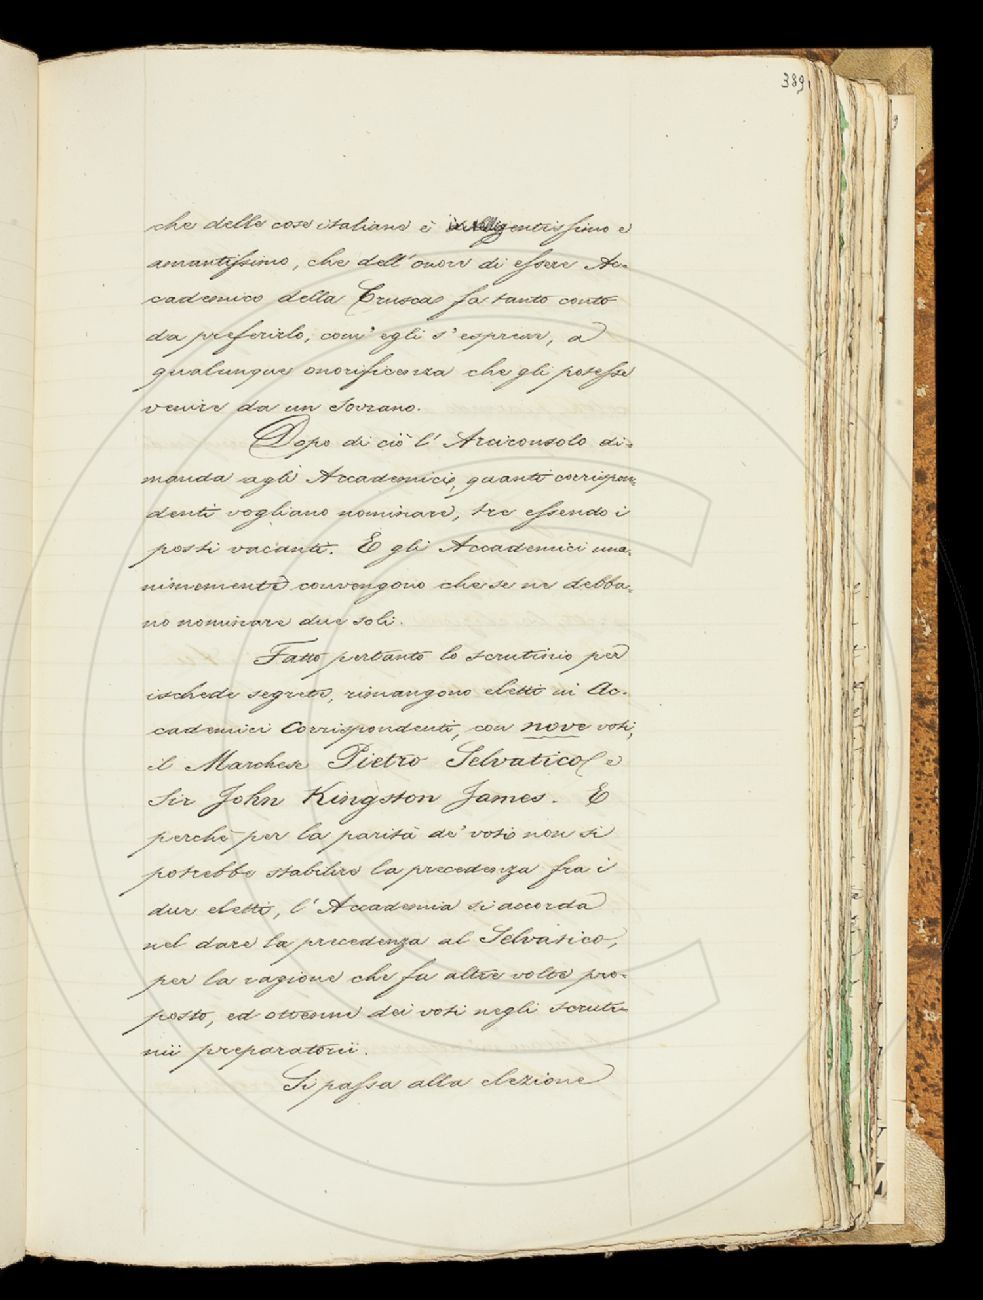 389
che delle cose italiane è intelligentissimo e
amantissimo, che dell'onore di essere Ac-
cademico della Crusca fa tanto conto
da preferirlo, com'egli s'esprime, a
qualunque onorificenza che gli potesse
venire da un Sovrano.
Dopo di ciò l'Arciconsolo di-
manda agli Accademici, quanti corrispon-
denti vogliano nominare, tre essendo i
posti vacanti. E gli Accademici una-
nimemente convengono che se ne debba-
no nominare due soli.
Fatto pertanto lo scrutinio per
ischede segrete, rimangono eletti in Ac-
cademici Corrispondenti, con nove voti,
il Marchese Pietro Selvatico e
Sir John Kingston James. E
perchè per la parità de' voti non si
potrebbe stabilire la precedenza fra i
due eletti, l'Accademia si accorda
nel dare la precedenza al Selvatico,
per la ragione che fu altre volte pro-
posto, ed ottenne dei voti negli scruti-
nii preparatorii.
Si passa alla elezione